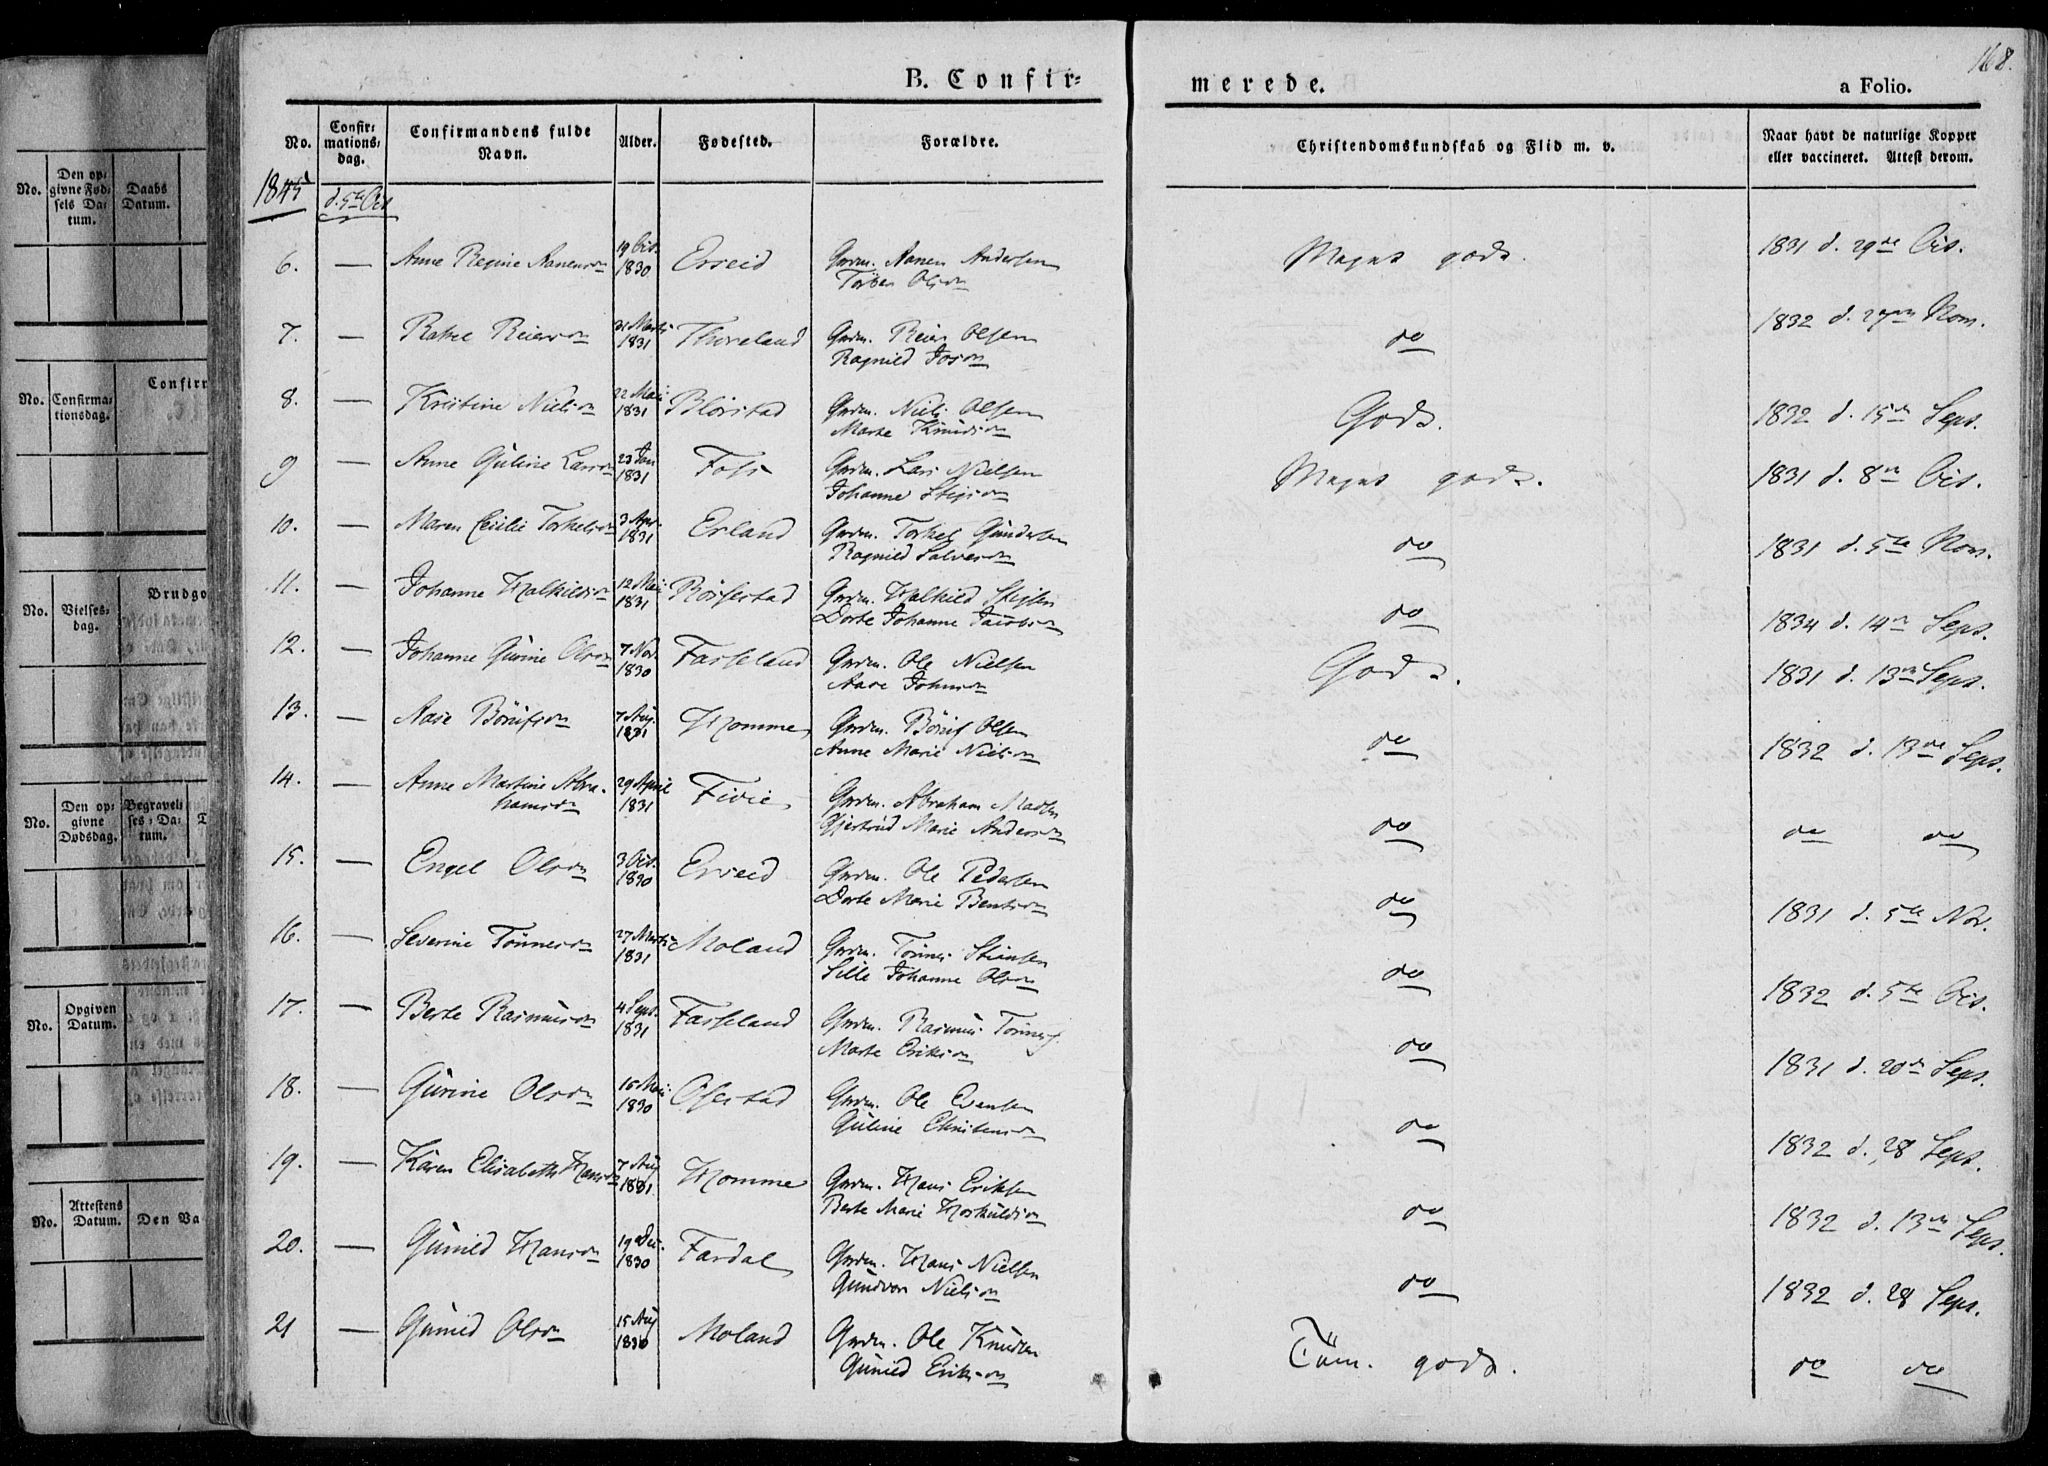 168.
B. Confir-
merede.
a Folio.
No.
Confir-
mations-
dag.
Confirmandens fulde
Navn.
Alder.
Fødested.
Forældre.
Christendomskundskab og Flid m. v.
Naar havt de naturlige Kopper
eller vaccineret. Attest derom.
1845
d. 5te Oct
6. — Anne Regine Aanens 19 Oct. 1830 Erseid Gmdm. Aanen Andersen
Torber Ols
Meget godt. 1831 d. 29de Oct.
7. — Rakel Reiers 31 Marts 1831 Thoreland Gmdm. Reier Olsen
Ragnild Jos
do 1832 d. Nov.
8. — Kristine Niels 22 Mai 1831 Blørstad Gmdm. Niels Olsen
Marte Knuds
Godt. 1832 d. 15de Sept.
9 — Anne Guline Lars 23 Jan 1831 Foss Gmdm. Lars Nielsen
Johanne Stigs
Meget godt. 1831 d. 8de Oct.
10. — Maren Cecilie Torkels 3 Apr. 1831 Erland Gmdm. Torkel Gundersen
Ragnild Salves
do 1831 d. 5te Nov.
11. — Johanne Halkilds 12 Mai 1831 Røiserstad Gmdm. Halkild Stigsen
Dorte Johanne Jacobs
do 1834 d. 14de Sept.
12. — Johanne Gurine Ols 7 Nov. 1830 Fasseland Gmdm. Ole Nielsen
Aase Johns
Godt. 1831 d. 13de Sept.
13. — Aase Børufs 7 Aug. 1831 Homme Gmdm. Børuf Olsen
Anne Marie Niels
do 1832 d. 13de Sept.
14. — Anne Martine Abra-
hams 29 April 1831 Fivie Gmdm. Abraham Madsen
Gjertrud Marie Anders
do do do
15. — Engel Ols 3 Oct. 1830 Erseid Gmdm. Ole Pedersen
Dorte Marie Bents
do 1831 d. 5te Nov.
16. — Severine Tønnes 27 Marts 1831 Moland Gmdm. Tønnes Stiansen
Sille Johanne Ols
do 1832 d. 5te Oct.
17. — Berte Rasmus 4 Sept. 1831 Fasseland Gmdm. Rasmus Tønnes
Marte Eriks
do 1831 d. 20de Sept.
18. — Gurine Ols 1830 Ofestad Gmdm. Ole Evensen
Guline Christens
do 1832 d. 28 Sept.
19. — Karen Elisabeth Hans 7 Aug 1831 Homme Gmdm. Hans Eriksen
Berte Marie Hoskulds
do 1832 d. 13de Sept.
20. — Gunild Hans 19 Dec. 1830 Fardal Gmdm. Hans Nielsen
Gundvor Niels
do 1832 d. 28 Sept.
21 — Gunild Ols 15 Aug 1830 Moland Gmdm. Ole Knudsen
Gunild Eriks
godt. do do
No.
Den op-
givne Fød-
sels Da-
tum.
Daabs
Datum.
No.
Confirma-
tionsdag.
No.
Vielses-
dag.
Brudgo
No.
Den op-
givne
Dødsdag.
Begravel-
ses-Da-
tum.
No.
Opgiven
Datum.
No.
Attestens
Datum.
Den Va